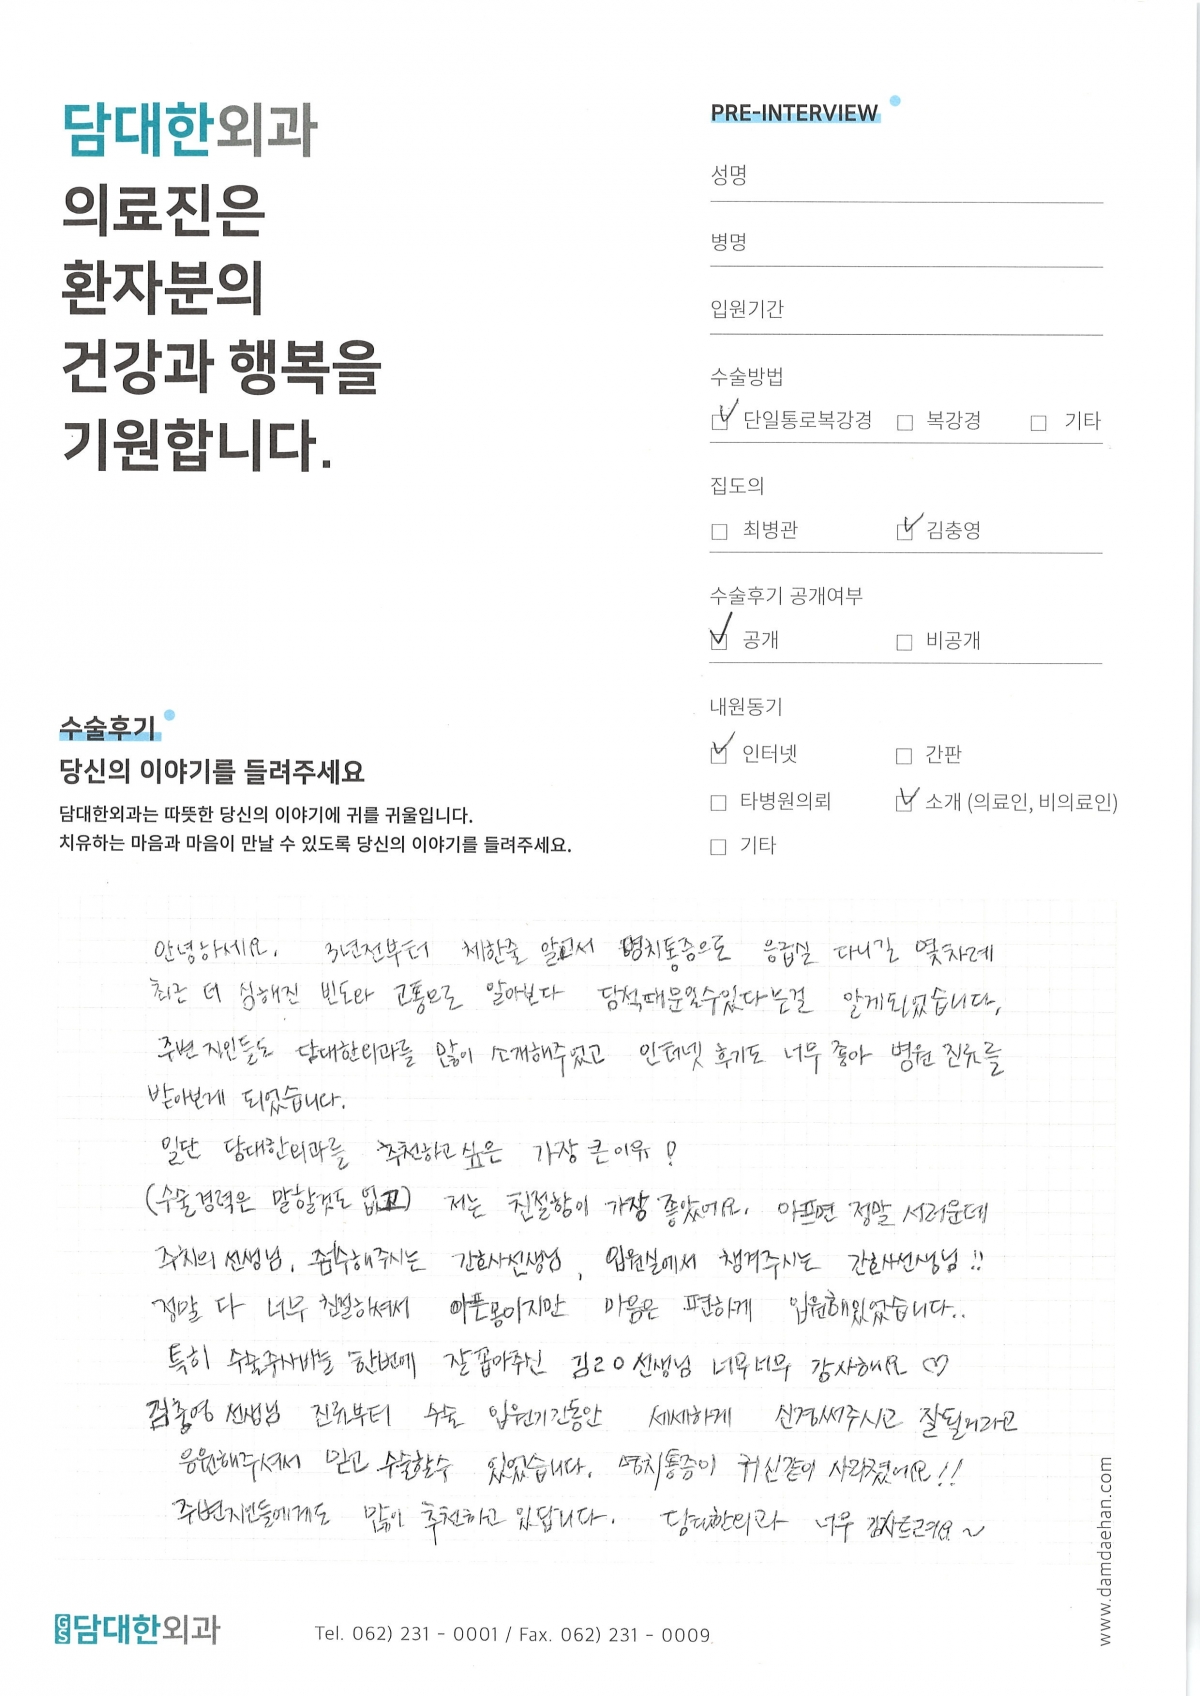 담대한외과
의료진은
환자분의
건강과 행복을
기원합니다.
PRE-INTERVIEW
성명
병명
입원기간
수술방법
☑ 단일통로복강경 ☐ 복강경 ☐ 기타
집도의
☐ 최병관 ☑ 김충영
수술후기 공개여부
☑ 공개 ☐ 비공개
내원동기
☑ 인터넷 ☐ 간판
☐ 타병원의뢰 ☑ 소개 (의료인, 비의료인)
☐ 기타
수술후기
당신의 이야기를 들려주세요
담대한외과는 따뜻한 당신의 이야기에 귀를 귀울입니다.
치유하는 마음과 마음이 만날 수 있도록 당신의 이야기를 들려주세요.
안녕하세요. 3년전부터 체한줄 알고서 명치통증으로 응급실 다니길 몇차례
최근 더 심해진 빈도와 고통으로 알아보다 담석때문일수있다는걸 알게되었습니다,
주변 지인들도 담대한외과를 많이 소개해주었고 인터넷 후기도 너무 좋아 병원 진료를
받아보게 되었습니다.
일단 담대한외과를 추천하고 싶은 가장 큰 이유?
(수술경력은 말할것도 없고) 저는 친절함이 가장 좋았어요. 아프면 정말 서러운데
주치의 선생님, 접수해주시는 간호사선생님, 입원실에서 챙겨주시는 간호사선생님!!
정말 다 너무 친절하셔서 아픈몸이지만 마음은 편하게 입원해있었습니다..
특히 수술주사바늘 한번에 잘 꼽아주신 김20 선생님 너무너무 감사해요 ♡
김충영 선생님 진료부터 수술 입원기간동안 세세하게 신경써주시고 잘될거라고
응원해주셔서 믿고 수술할수 있었습니다. 명치통증이 귀신같이 사라졌어요!!
주변지인들에게도 많이 추천하고 있답니다. 담대한외과 너무 감사드려요~
GS담대한외과
Tel. 062) 231 - 0001 / Fax. 062) 231 - 0009
www.damdaehan.com